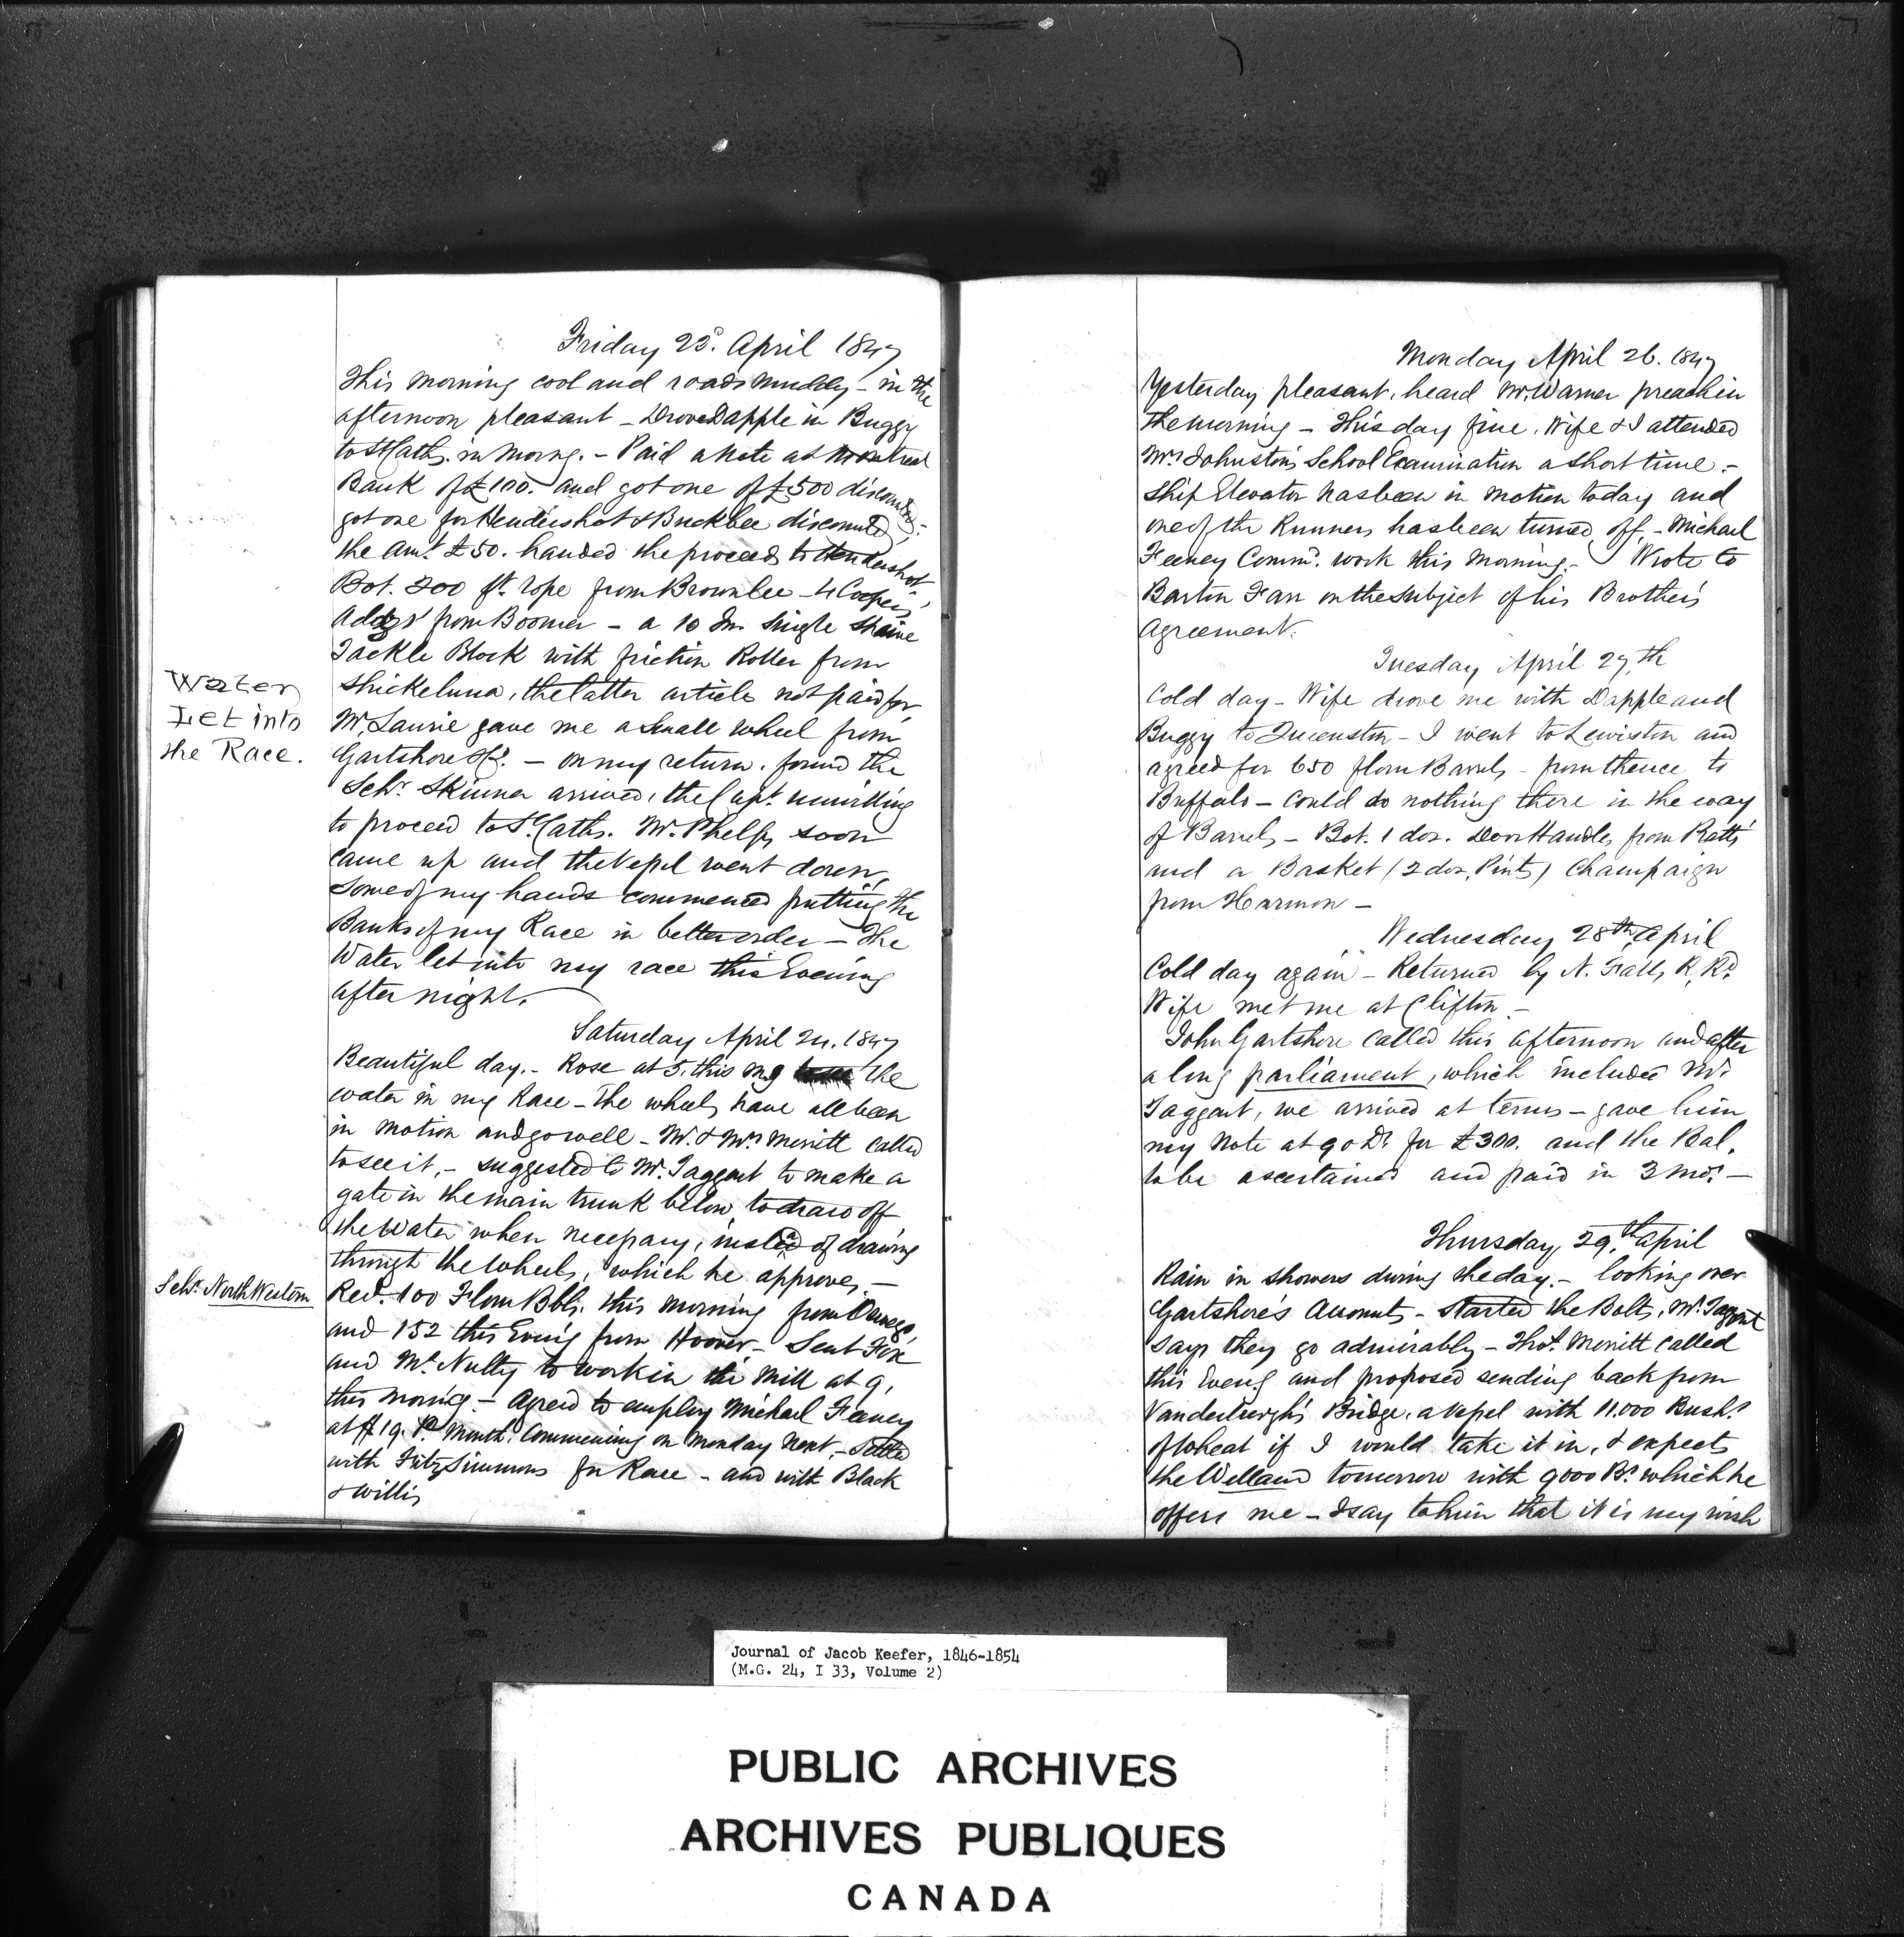 Friday 23d. April 1847
This morning cool and roads muddy - in the
afternoon pleasant - Drove Dapple in Buggy
to St Caths. in morng. - Paid a note at Montreal
Bank of £100. and got one of £500 discounted,-
got one for Hendershot & Buckbee discounted,
the amt. £50. handed the proceeds to Hendershot
Bot. 200 ft. rope from Brownlee - 4 Coopers'
Addzs' from Boomer - a 10 In. Single
Tackle Block with friction Roller from
Shickeluna, the latter article not paid for,
Mr. Laurie gave me a small wheel from
Gartshore & Co. - on my return, found the
Schr. Skinner arrived, the Capt. unwilling
to proceed to St. Caths. Mr. Phelps soon
came up and the Vessel went down,
Some of my hands commenced putting the
Banks of my Race in better order - The
Water let into my race this Evening
after night.
Water
Let into
the Race.
Saturday April 24. 1847
Beautiful day. - Rose at 5. this mg the
water in my Race - The wheels have all been
in motion and go well - Mr. & Mrs Merritt called
to see it, - suggested to Mr. Taggart to make a
gate in the main trunk below, to draw off
the Water when necessary, instead of drawing
through the Wheels, which he approves, -
Schr. North Western
Recd. 100 Flour Bbls. this morning from Oswego,
and 152 this Eveng from Hoover - Sent Fox
and McNulty to work in the Mill at 9,
this morng - Agreed to employ Michael Feeney
at $19. Pr Month, Commencing on Monday next, - Settled
with FitzSimmons for Race - and with Black
& Willis
Monday April 26. 1847
Yesterday pleasant, heard Mr. Warner preach in
the morning - This day fine, Wife & I attended
Mrs Johnston's School Examination a short time. -
Ship Elevator has been in motion today and
one of the Runners has been turned off, - Michael
Feeney Comm'd. work this morning. - Wrote to
Barton Farr on the subject of his Brother's
Agreement.
Tuesday April 27,th
Cold day - Wife drove me with Dapple and
Buggy to Queenston - I went to Lewiston and
agreed for 650 flour Barrels - from thence to
Buffalo - could do nothing there in the way
of Barrels - Bot. 1 doz. Door Handles from Pratts'
and a Basket (2 doz. Pints) Champaign
from Harmon -
Wednesday 28th April
Cold day again - Returned by N. Falls R. Rd.
Wife met me at Clifton. -
John Gartshore called this afternoon and after
a long parliament, which included Mr.
Taggart, we arrived at terms - gave him
my note at 90 Ds. for £300. and the Bal.
to be ascertained and paid in 3 mos. -
Thursday, 29th. April
Rain in showers during the day. - looking over
Gartshore's Accounts - Started the Bolts, Mr. Taggart
says they go admirably - Thos. Merritt called
this Eveng and proposed sending back from
Vanderburgh's Bridge, a Vessel with 11.000 Bushs.
of Wheat if I would take it in, & expects
the Welland tomorrow with 9000 Bs. which he
offers me - I say to him that it is my wish
Journal of Jacob Keefer, 1846-1854
(M.G. 24, I 33, Volume 2)
PUBLIC ARCHIVES
ARCHIVES PUBLIQUES
CANADA